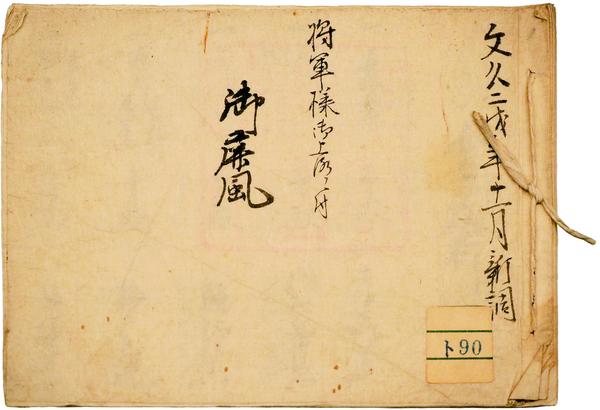 文久二戌年十一月新調
将軍様御上洛ニ付
御屏風
ト90